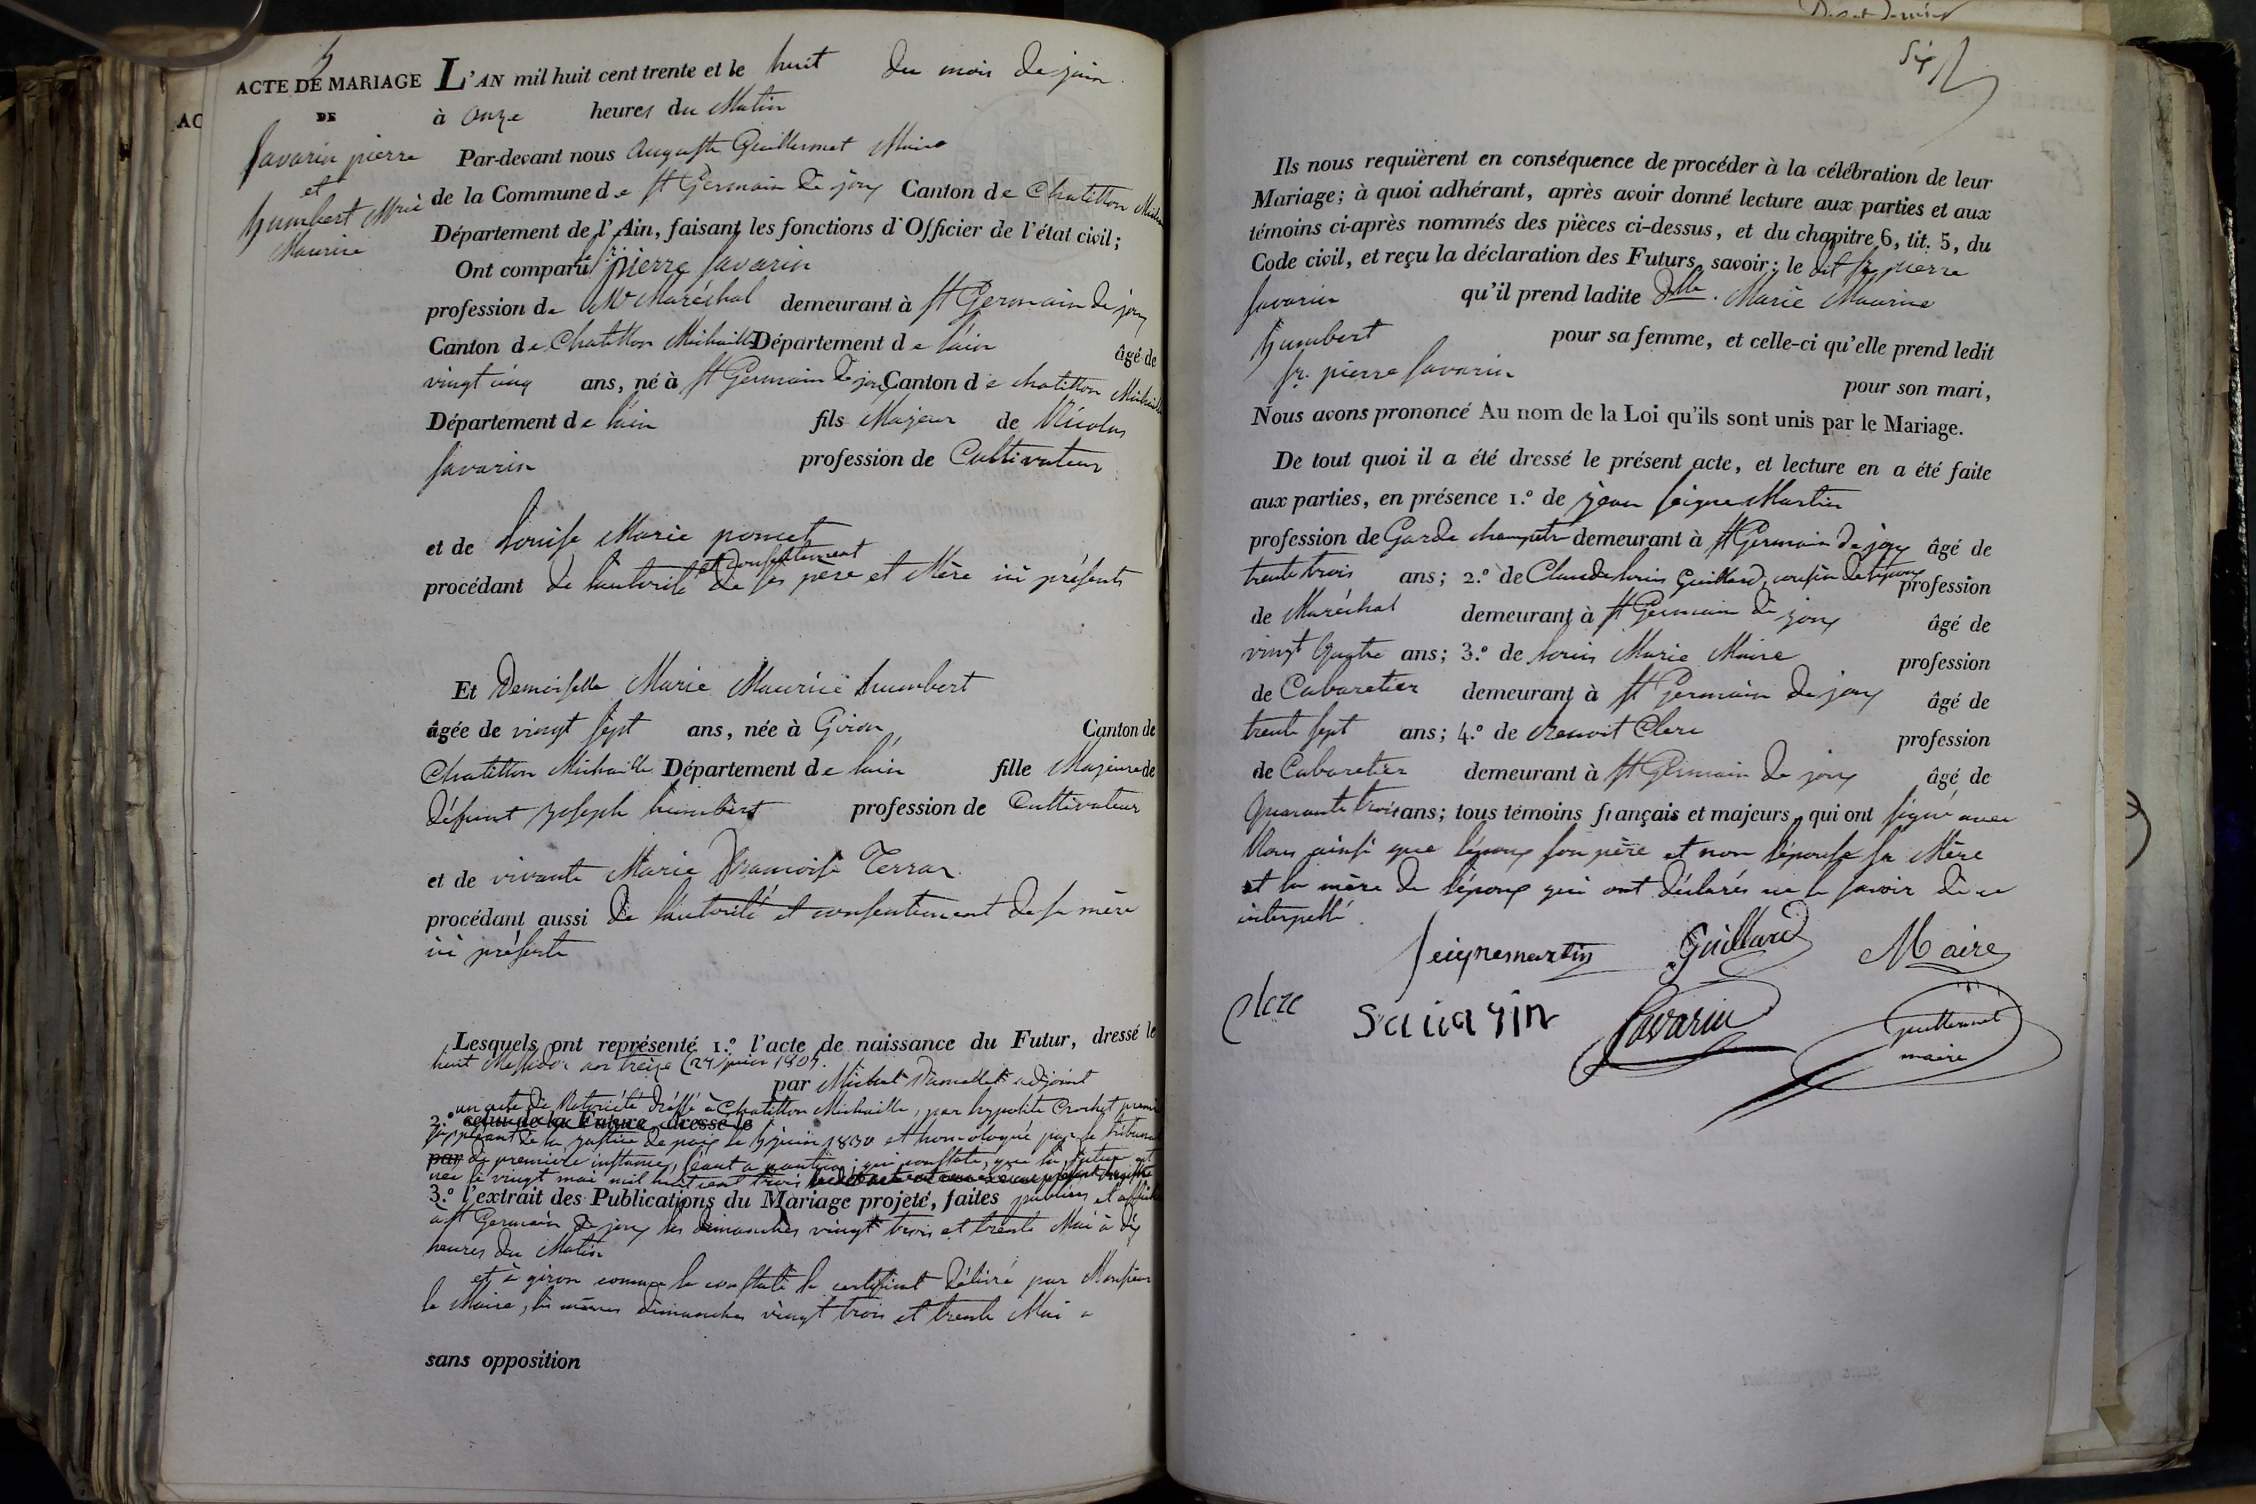 5
ACTE DE MARIAGE
DE
Savarin pierre
et
humbert Marie
Maurice
AC
L'AN mil huit cent trente et le huit du mois de juin
à onze heures du Matin
Par-devant nous Auguste Guillermet Maire
de la Commune de St Germain de joux Canton de Chatillon
Département de l'Ain, faisant les fonctions d'Officier de l'état civil;
Ont comparu pierre Savarin
profession de Maréchal demeurant à St Germain de joux
Canton de Chatillon Michaille Département de l'ain âgé de
vingt cinq ans, né à St Germain de joux Canton de chatillon Michaille
Département de l'ain fils Majeur de Nicolas
Savarin profession de Cultivateur
et de Louise Marie poncet
et consentement
procédant de l'autorité de ses père et Mère ici présents
Et Demoiselle Marie Maurice humbert
âgée de vingt sept ans, née à Giron Canton de
Chatillon Michaille Département de l'ain fille Majeure de
défunt joseph humbert profession de Cultivateur
et de vivante Marie francoise Terraz
procédant aussi de l'autorité et consentement de sa mère
ici présente
Lesquels ont représenté 1.° l'acte de naissance du Futur, dressé le
huit Messidor an treize (27 juin 1805.
par Michel adjoint
un acte de Notoriété dréssé à Chatillon Michaille, par hypolite Crochet premier
2.° celui de la Future dressé le
suppleant de la justice de paix le 5 juin 1830 et homologué par le tribunal
par de premiere instance, séant a nantua; qui constate, que la future est
née le vingt mai mil huit cent trois
3.° l'extrait des Publications du Mariage projeté, faites publiées et affichées
à St Germain de joux les dimanches vingt trois et trente Mai à dix
heures du Matin
et à giron comme le constate le certificat délivré par Monsieur
le Maire, les mêmes dimanches vingt trois et trente Mai
sans opposition
Ils nous requièrent en conséquence de procéder à la célébration de leur
Mariage; à quoi adhérant, après avoir donné lecture aux parties et aux
témoins ci-après nommés des pièces ci-dessus, et du chapitre 6, tit. 5, du
Code civil, et reçu la déclaration des Futurs, savoir: le dit Sr. pierre
Savarin qu'il prend ladite Dlle. Marie Maurice
humbert pour sa femme, et celle-ci qu'elle prend ledit
Sr. pierre Savarin pour son mari,
Nous avons prononcé Au nom de la Loi qu'ils sont unis par le Mariage.
De tout quoi il a été dressé le présent acte, et lecture en a été faite
aux parties, en présence 1.° de jean Seigne Martin
profession de Garde champêtre demeurant à St Germain de joux âgé de
trente trois ans; 2.° de Claude Louis Guillard, cousin de l'époux profession
de Maréchal demeurant à St Germain de joux âgé de
vingt quatre ans; 3.° de Louis Marie Maire profession
de Cabaretier demeurant à St Germain de joux âgé de
trente sept ans; 4.° de Benoit Clerc profession
de Cabaretier demeurant à St Germain de joux âgé de
quarante trois ans; tous témoins français et majeurs, qui ont signé avec
Nous ainsi que l'époux son père et non l'épouse sa Mère
et la mère de l'époux qui ont déclarés ne le savoir de ce
interpellé.
Seignemartin Guillard Maire
clerc Savarin Savarin guillermet
maire